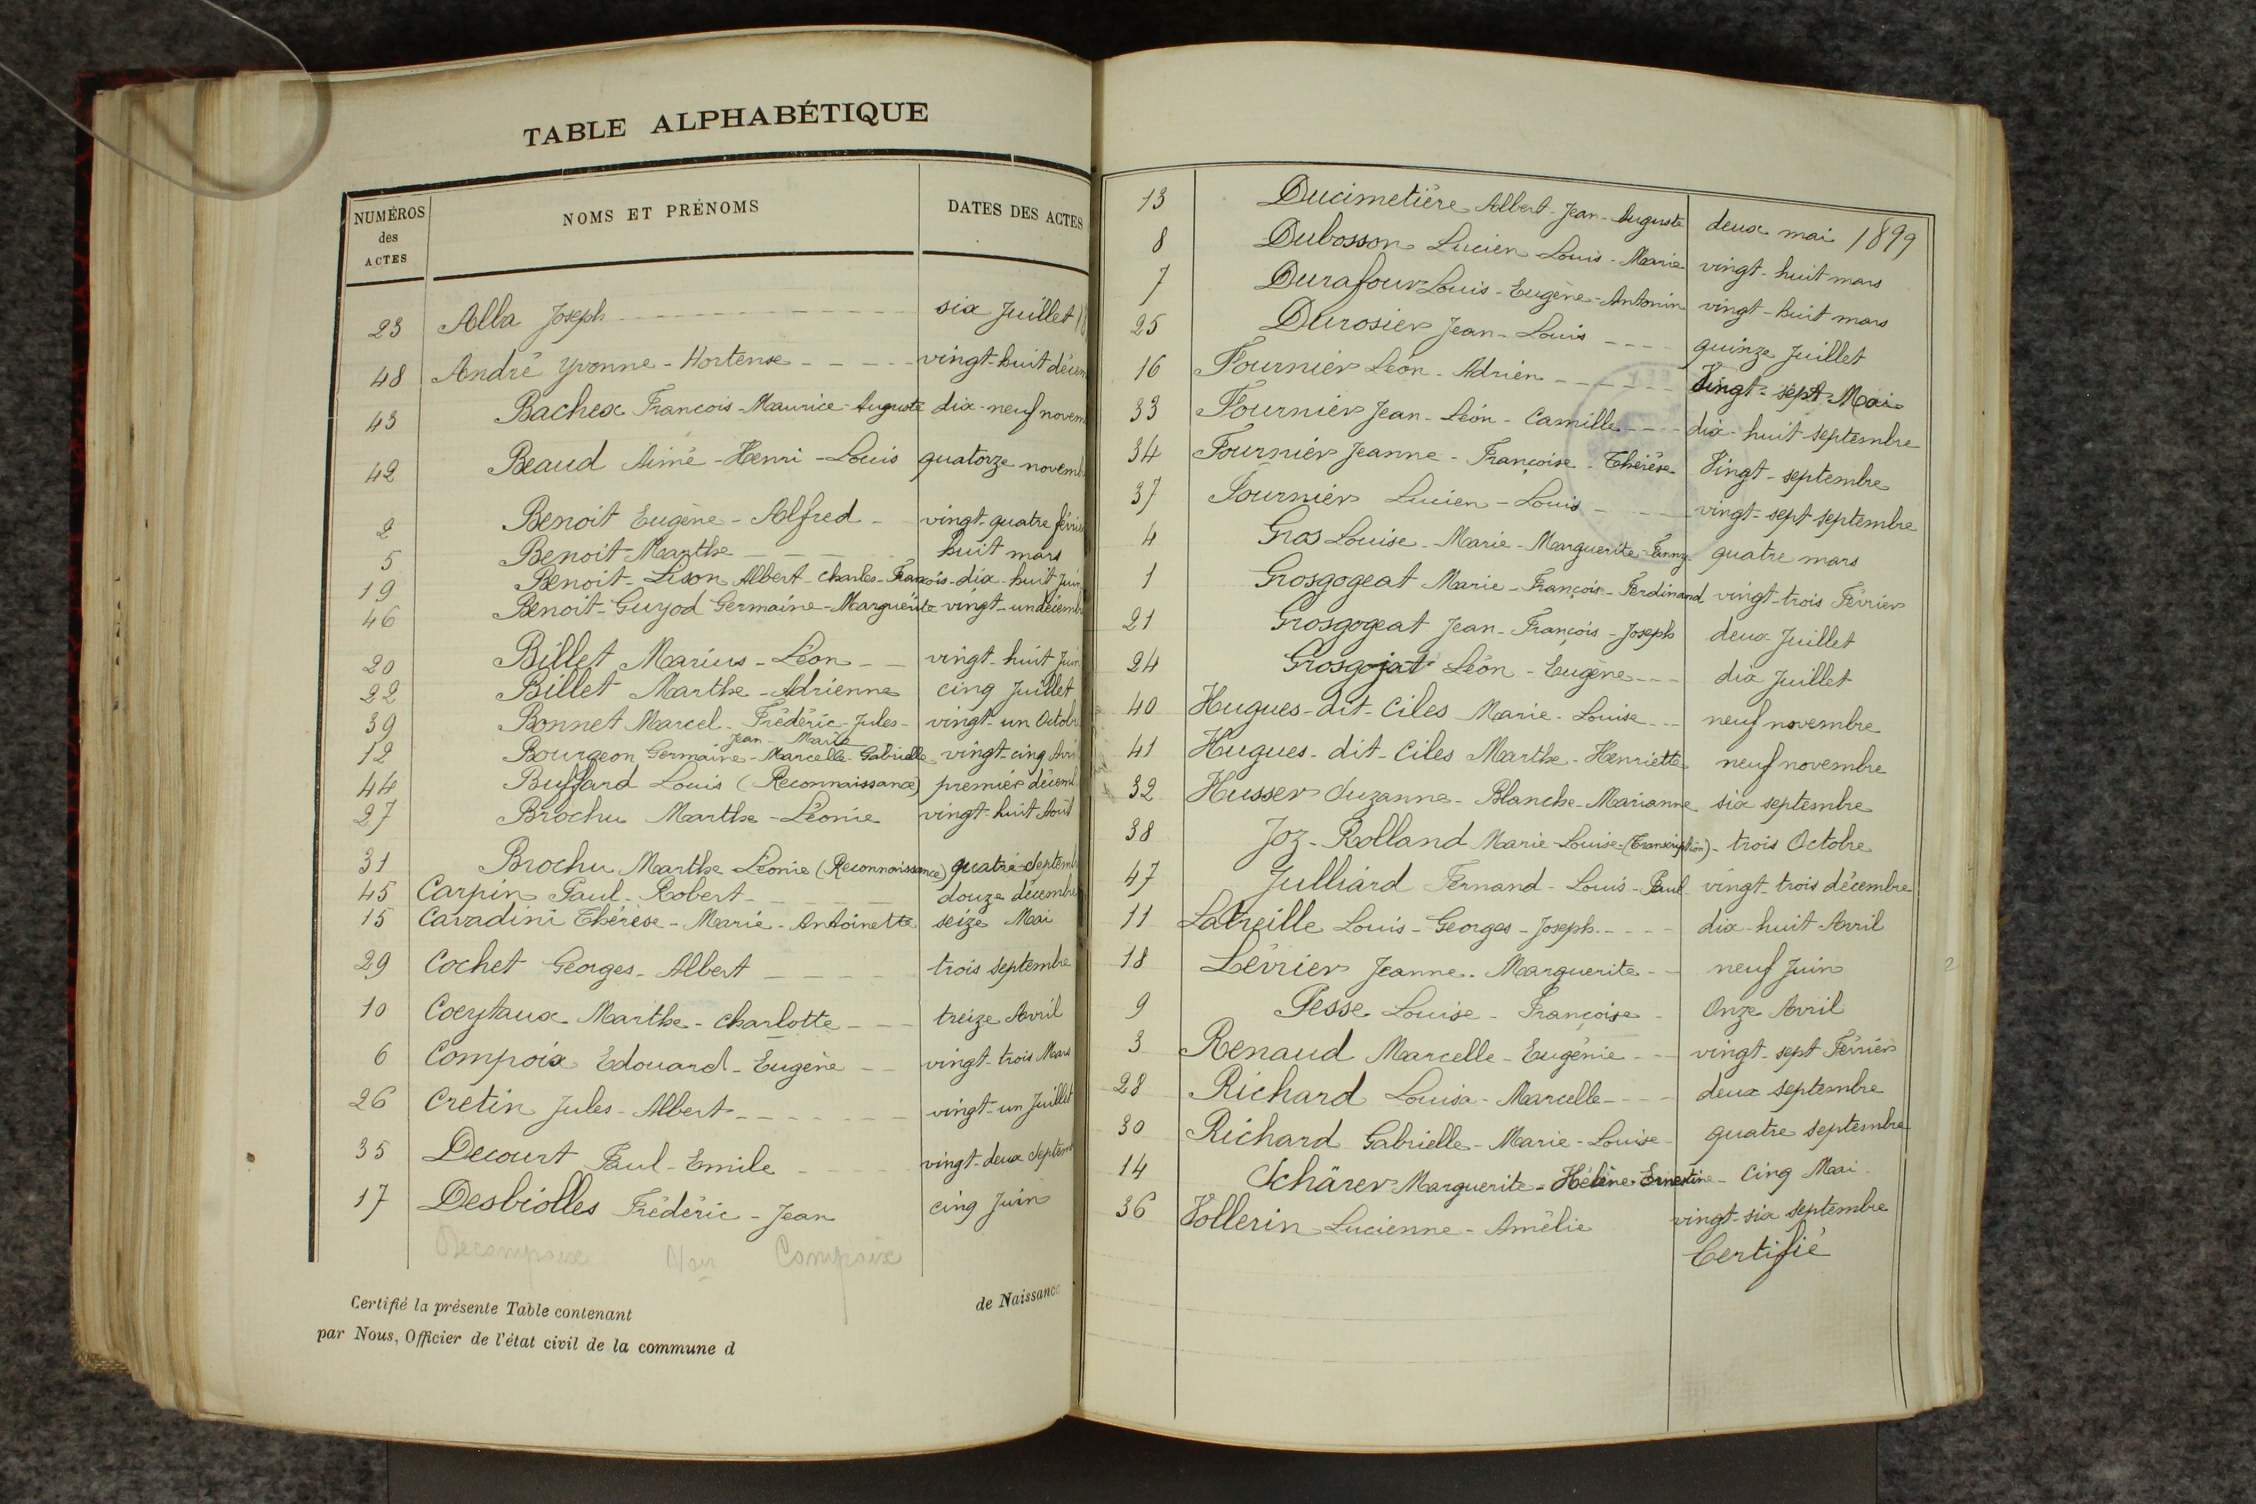 TABLE ALPHABÉTIQUE
NUMÉROS des ACTES NOMS ET PRÉNOMS DATES DES ACTES
23 Alba Joseph six Juillet 18
48 André Yvonne-Hortense vingt-huit décem
43 Bachex François-Maurice-Auguste dix-neuf novem
42 Beaud Aimé-Henri-Louis quatorze novemb
2 Benoit Eugène-Alfred vingt-quatre févri
5 Benoit Marthe huit mars
19 Benoit-Lison Albert-Charles-François dix-huit Juin
46 Benoit-Guyod Germaine-Marguerite vingt-un décemb
20 Billet Marius-Léon vingt-huit Juin
22 Billet Marthe-Adrienne cinq Juillet
39 Bonnet Marcel-Frédéric-Jules vingt-un Octob
Jean-Marie
12 Bourgeon Germaine-Marcelle-Gabrielle vingt-cinq Avri
44 Buffard Louis (Reconnaissance) premier décemb
27 Brochu Marthe-Léonie vingt-huit Août
31 Brochu Marthe Léonie (Reconnaissance) quatre Septemb
45 Carpin Paul-Robert douze décembre
15 Cavadini Thérèse-Marie-Antoinette seize Mai
29 Cochet Georges-Albert trois septembre
10 Coeytaux Marthe-Charlotte treize Avril
6 Compoix Edouard-Eugène vingt-trois Mars
26 Cretin Jules-Albert vingt-un Juillet
35 Decourt Paul-Emile vingt-deux Septem
17 Desbiolles Frédéric-Jean cinq Juin
Decompoix Voir Compoix
Certifié la présente Table contenant de Naissance
par Nous, Officier de l'état civil de la commune d
13 Ducimetière Albert-Jean-Auguste deux mai 1899
8 Dubosson Lucien-Louis-Marie vingt-huit mars
7 Durafour Louis-Eugène-Antonin vingt-huit mars
25 Durosier Jean-Louis quinze Juillet
16 Fournier Léon-Adrien Vingt-sept Mai
33 Fournier Jean-Léon-Camille dix-huit septembre
34 Fournier Jeanne-Françoise-Thérèse Vingt-septembre
37 Fournier Lucien-Louis vingt-sept septembre
4 Gros Louise-Marie-Marguerite-Fanny quatre mars
1 Grosgogeat Marie-François-Ferdinand vingt-trois Février
21 Grosgogeat Jean-François-Joseph deux Juillet
24 Grosgojat Léon-Eugène dix Juillet
40 Hugues-dit-Ciles Marie-Louise neuf novembre
41 Hugues-dit-Ciles Marthe-Henriette neuf novembre
32 Husser Suzanne-Blanche-Marianne six septembre
38 Joz-Rolland Marie-Louise (Transcription) trois Octobre
47 Julliard Fernand-Louis-Paul vingt-trois décembre
11 Latreille Louis-Georges-Joseph dix-huit Avril
18 Lévrier Jeanne-Marguerite neuf Juin
9 Pesse Louise-Françoise Onze Avril
3 Renaud Marcelle-Eugénie vingt-sept Février
28 Richard Louisa-Marcelle deux septembre
30 Richard Gabrielle-Marie-Louise quatre septembre
14 Schärer Marguerite-Hélène-Ernestine Cinq Mai
36 Vollerin Lucienne-Amélie vingt-six septembre
Certifié
2